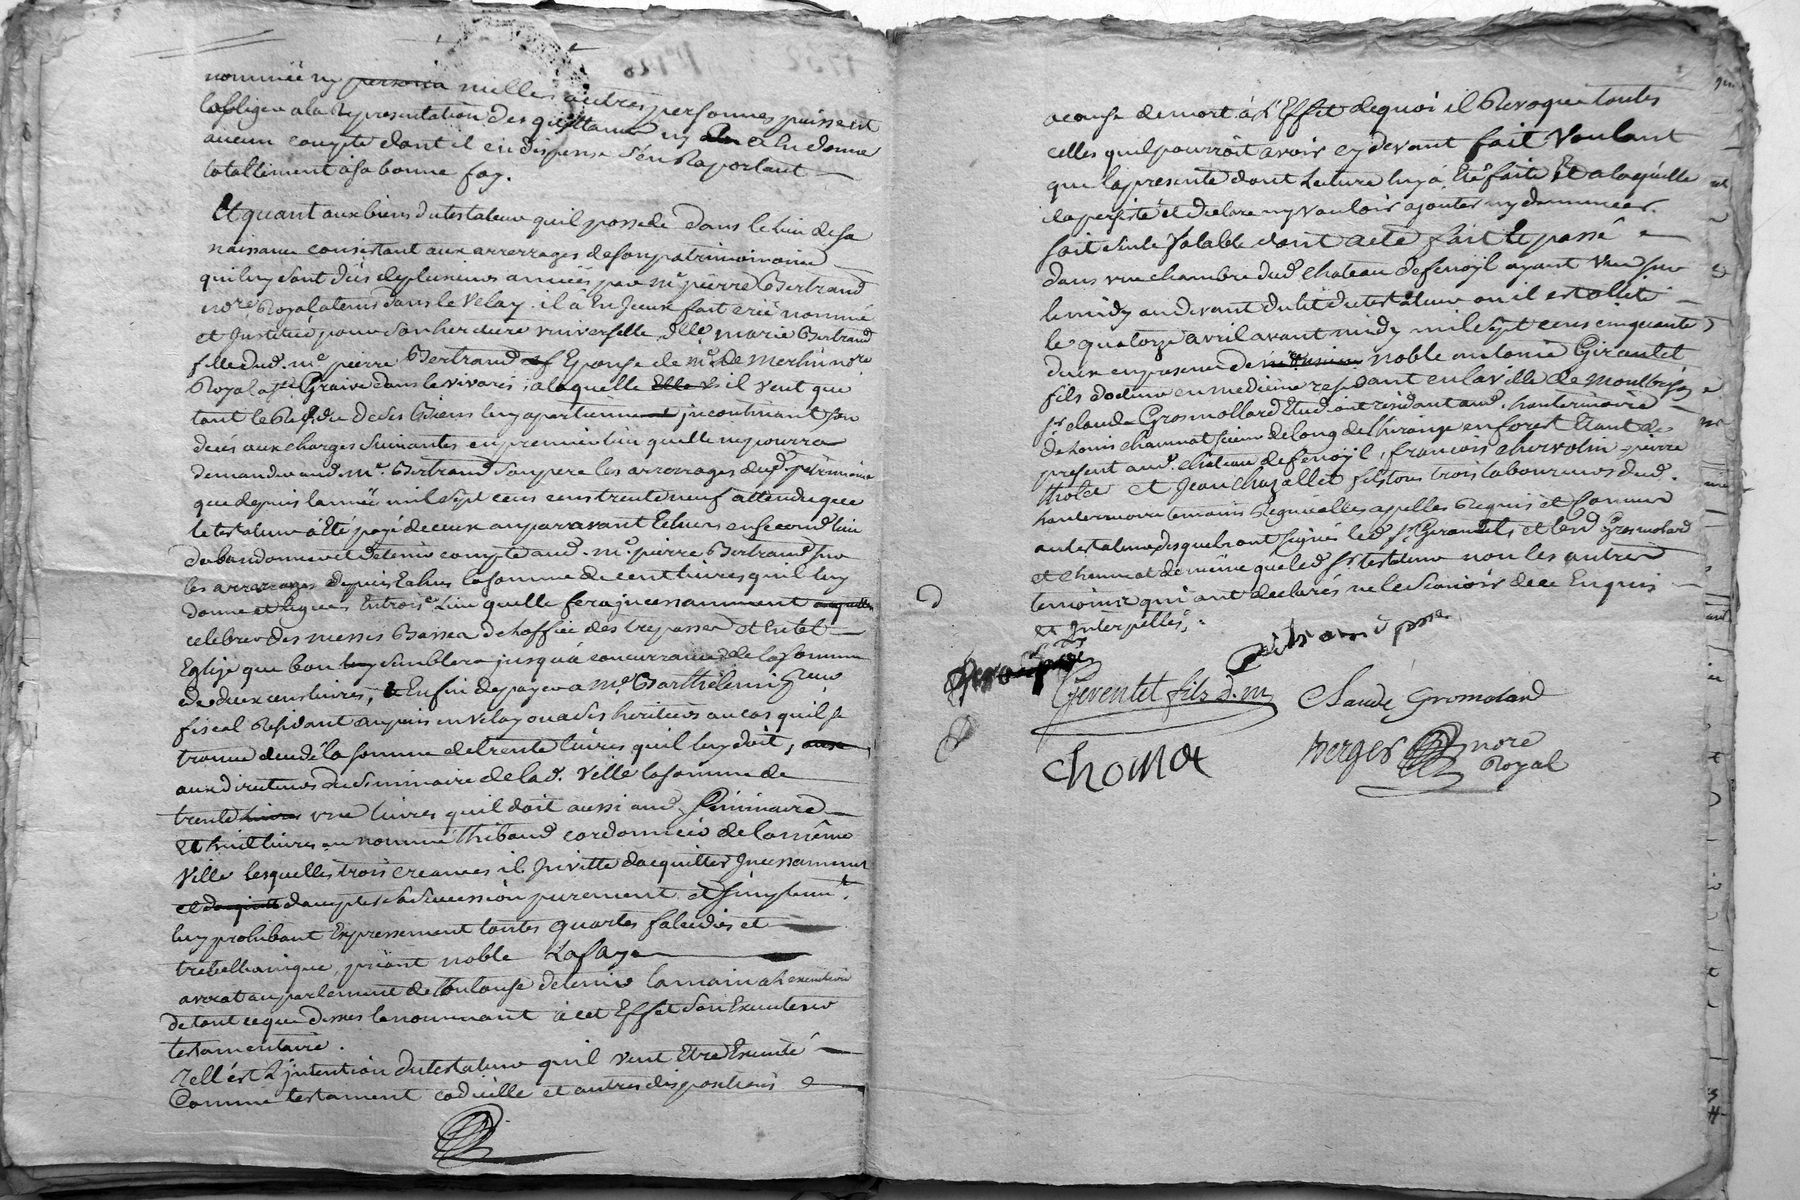 nommée ny milles autres personnes puissent
l'obliger a la representation des quittances ny a luy donner
aucun compte dont il en dispense s'en Raportant
totallement à sa bonne foy.
Et quant aux biens du testateur qu'il possede dans le lieu de sa
naissance consistant aux arrerages de son patrimoine
qui luy sont dus de plusieurs années par me pierre Bertrand
nore Royal dans le Velay. il à En Jceux fait créé nommé
et Jnstitué pour son heritiere vniverselle dlle marie Bertrand
fille dud. me pierre Bertrand Epouse de me De merlin nore
Royal a Graive dans le vivarés; a laquelle il veut que
tout le Reste de des Biens luy apartienne jncontinant son
decés aux charges suivantes en premier lieu quelle ne pourra
demander aud. me Bertrand son pere les arrerages dud. patrimoine
que depuis lannée mil sept cens trente neuf attendu que
le testateur à Eté payé de ceux auparavant Echus en second lieu
dabandonner et detenir compte aud. me pierre Bertrand sur
les arrerages depuis Echus la somme de cent livres qu'il luy
donne et legue Entroise. Lieu quelle fera jncessamment
celebrer des messes Basses de hoffice des trepassés Et en tel
Eglise que bon semblera jusquà concurrance de la somme
de deux cens livres, Enfin de payer a me Barthelemi
fiscal Residant en velay ou a ses heritiers au cas qu'il se
trouve decedé la somme de trente livres qu'il luy doit,
aux directeurs du Seminaire de lad. Ville la somme de
trente vne livres qu'il doit aussi aud. Seminaire
Et huit livres au nommé Thibaud cordonnier de la même
Ville lesquelles trois creances il Jnvitte dacquitter Jncessamment
daccepter sa Succession purement et simplemt.
luy prohibant Expressement toutes quartes falcidies et
trebellianique, priant noble Lafaye
avocat au parlement de Toulouse de tenir la main a l'execution
de tout ce que dessus le nommant à cet Effet son Executeur
testamentaire.
Telle est l'jntention du testateur qu'il veut Etre Executé
Comme testament codicille et autres dispositions
a cause de mort à l'Effet dequoi il Revoque toutes
celles qu'il pourroit avoir cy devant fait Voulant
que la presente dont Lecture luy à Eté faite Et a laquelle
il a persisté et declare ny vouloir ajouter ny diminuer.
soit seule Valable dont acte fait Et passé
dans vne chambre dud. chateau de fenoÿl ayant vüe sur
le midy au devant du lit du testateur ou il est allité
le quatorze avril avant midy mil sept cens cinquante
deux en presence de noble antoine Girentet
fils docteur en medecine residant en la ville de Montbrison
sr. claude Grosmollard Etudiant residant aud. hauterivoire
de Louis chaumat sieur de Long de chirange en forest Etant de
present aud. chateau de fenoÿl, francois chervolin pierre
thole Et Jean chazallet fils tous trois laboureurs dud.
hauterivoire temoins Requis et
au testateur desquels ont signés led. sr. Girentet et led. Grosmolard
et chaumat de même que led. sr. testateur non les autres
temoins qui ont declarés ne le scavoir de ce Enquis
et Jnterpellés;
Gerentet fils d. m
Claude Gromolard
chomat
verger nore
Royal